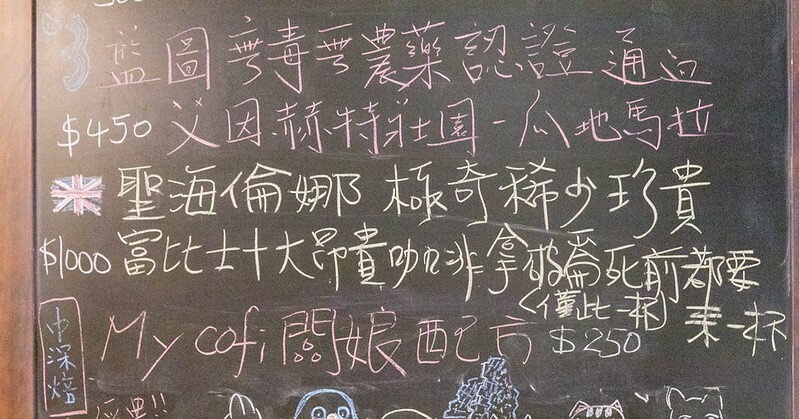 藍圖零毒零農藥認證通過
$450 艾因赫特莊園-瓜地馬拉
聖海倫娜 極奇稀少珍貴
$1000 富比士十大昂貴咖啡拿破崙死前都要
來一杯
<僅此一杯>
中深焙 My cofi 闆娘配方 $250